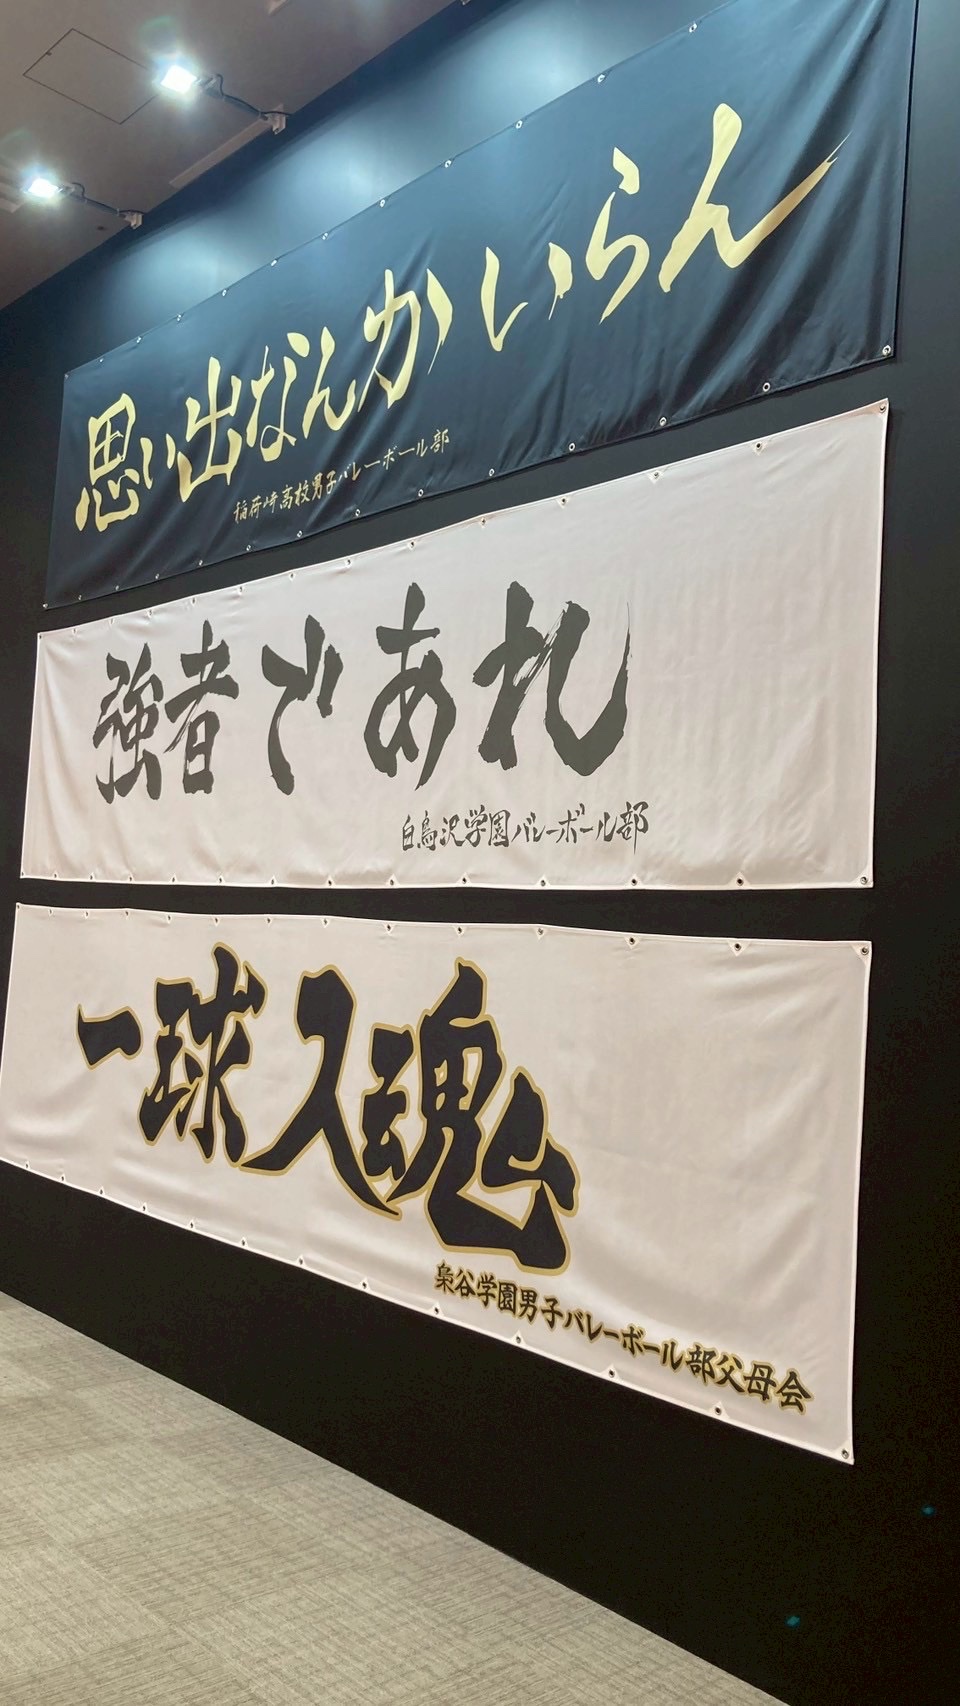 思い出なんかいらん
稲荷崎高校男子バレーボール部
強者であれ
白鳥沢学園バレーボール部
一球入魂
梟谷学園男子バレーボール部父母会